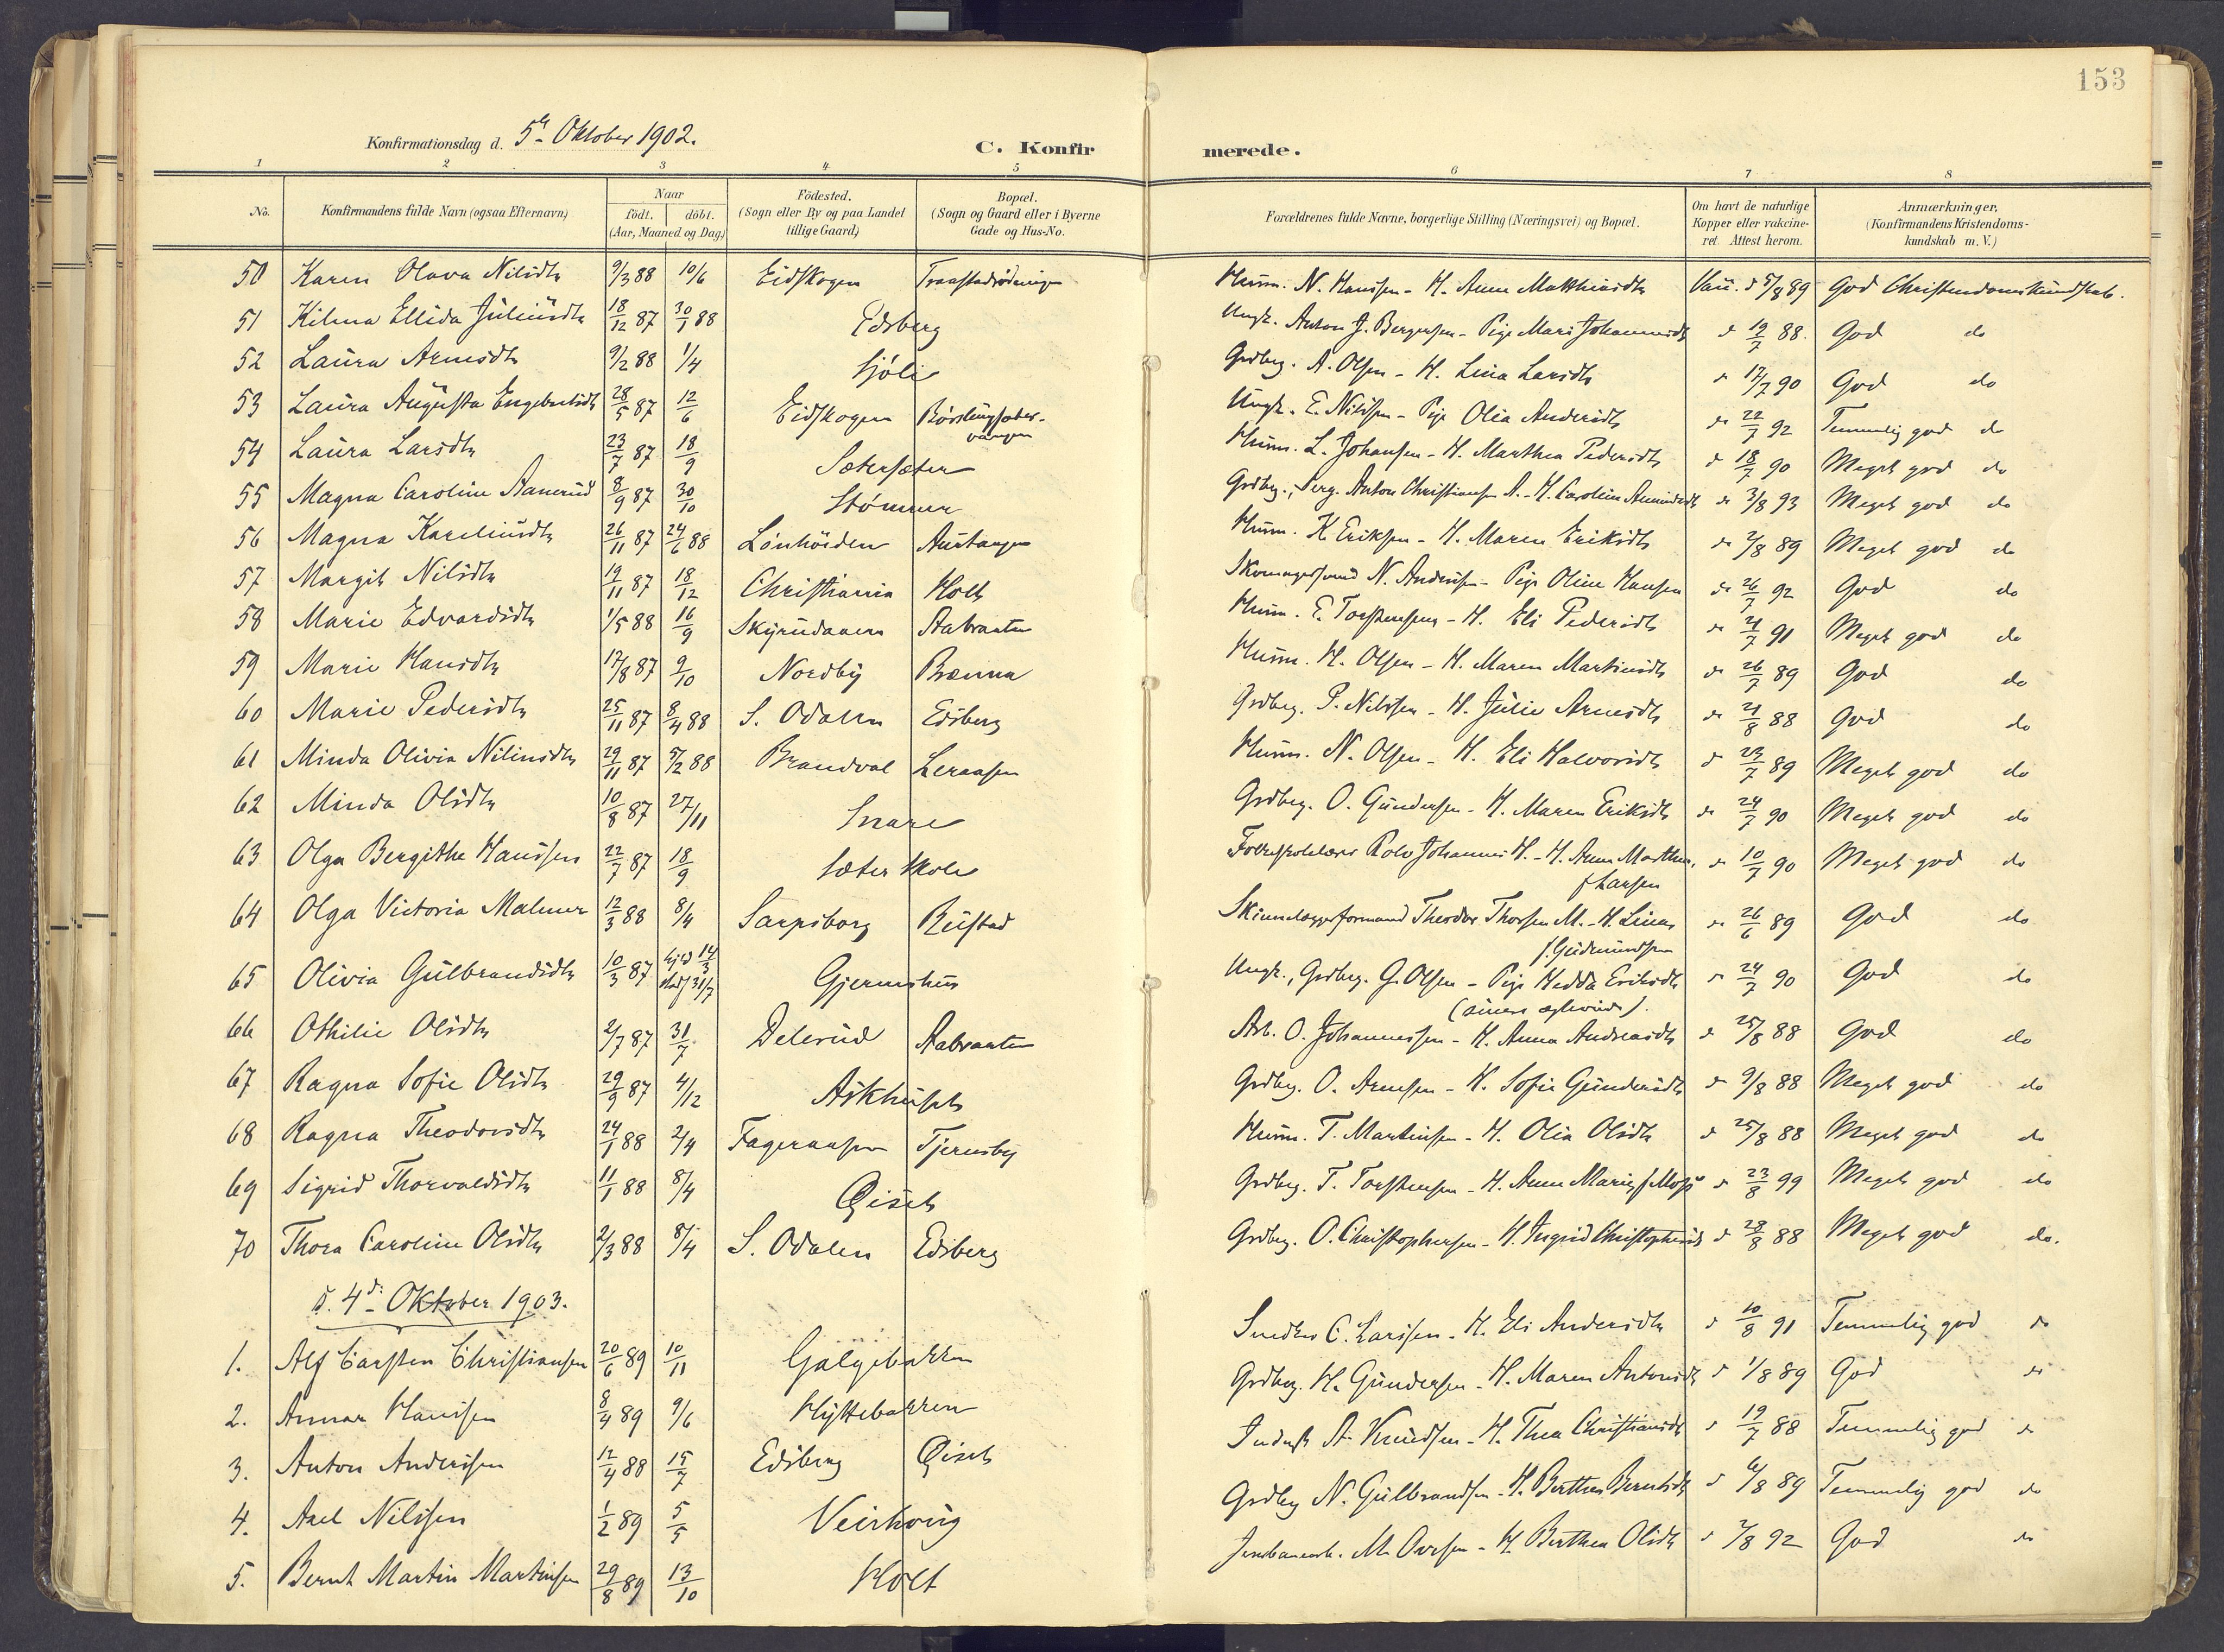 153
Konfirmationsdag d. 5te Oktober 1902.
C. Konfirmerede.
1 2 3 4 5 6 7 8
No. Konfirmandens fulde Navn (ogsaa Efternavn) Naar födt. döbt. (Aar, Maaned og Dag) Födested. (Sogn eller By og paa Landet tillige Gaard) Bopæl. (Sogn og Gaard eller i Byerne Gade og Hus-No. Forældrenes fulde Navne, borgerlige Stilling (Næringsvei) og Bopæl. Om havt de naturlige Kopper eller vakcineret. Attest herom. Anmærkninger, (Konfirmandens Kristendomskundskab m. V.)
50 Karen Olava Nilsdtr 9/3 88 10/6 Eidskogen Husm. N. Hansen - H. Anne Matthiasdtr Vac. d 5/8 89 God Christendomskundskab.
51 Ellida Juliusdtr 18/12 87 30/1 88 Edsberg Ungk. Anton J. Bergersen - Pige Mari Johannesdtr d 19/7 88. God do
52 Laura Arnesdtr 9/2 88 1/4 Sjöli Grdbrg. A. Olsen - H. Lina Larsdtr d 17/7 90 God do
53 Laura Augusta Engebretsdtr 28/5 87 12/6 Eidskogen Ungk. E. Nilssen - Pige Olea Andersdtr d 22/7 92 Temmelig god do
54 Laura Larsdtr 23/7 87 18/9 Sætersæter Husm. L. Johansen - H. Marthea Pedersdtr d 18/7 90 Meget god do
55 Magna Caroline Aanerud 8/9 87 30/10 Strömmen Grdbrg., Serg. Anton Christiansen A. - H. Caroline d 3/8 93 Meget god do
56 Magna Kareliusdtr 26/11 87 24/6 88 Lönhöiden Austangen Husm. K. Eriksen - H. Maren Eriksdtr d 2/8 89 Meget god do
57 Margit Nilsdtr 19/11 87 18/12 Christiania Holt Skomagersvend N. Andersen - Pige Oline Hansen d 26/7 92 God do
58 Marie Edvardsdtr 1/5 88 16/9 Skyrudaaern Aabraaten Husm. E. Torstensen - H. Eli Pedersdtr d 21/7 91 Meget god do
59 Marie Hansdtr 17/8 87 9/10 Nordby Brænna Husm. H. Olsen - H. Maren Martinsdtr d 26/7 89 God do
60 Marie Pedersdtr 25/11 87 8/4 88 S. Odalen Edsberg Grdbrg. P. Nilssen - H. Julie Arnesdtr d 21/8 88 God do
61 Minda Olivia Nilsdtr 29/11 87 5/2 88 Brandval Leraasen Husm. N. Olsen - H. Eli Halvorsdtr d 23/7 89 Meget god do
62 Minda Olsdtr 10/8 87 27/11 Snare Grdbrg. O. Gundersen - H. Maren Eriksdtr d 24/7 90 Meget god do
63 Olga Bergithe Hanssen 22/7 87 18/9 Sæter Skole Folkeskolelærer Rolv Johannes H. - H. Anne Marthea f. Larsen d 10/7 90 Meget god do
64 Olga Victoria Malmer 12/3 88 8/4 Sarpsborg Rustad Skinnelæggerformand Theodor Thorsen M. - H. Lina f. Gudmundsen d 26/6 89 God do
65 Olivia Gulbrandsdtr 10/3 87 hjd 14/3 stadf 31/7 Gjermshus Ungk., Grdbrg. G. Olsen - Pige Hedda Eriksdtr d 24/7 90 God do
66 Othilie Olsdtr 2/7 87 31/7 Delerud Aabraaten Arb. O. Johannessen - H. Anna Andreasdtr d 25/8 88 God do
67 Ragna Sofie Olsdtr 29/9 87 4/12 Askhuset Grdbrg. O. Arnesen - H. Sofie Gundersdtr d 9/8 88 Meget god do
68 Ragna Theodorsdtr 24/1 88 2/4 Fageraasen Tjernsby Husm. T. Martinsen - H. Olea Olsdtr d 25/8 88 Meget god do
69 Sigrid Thorvaldsdtr 11/1 88 8/4 Grdbrg. T. Torstensen - H. Anne Marie f. Moss d 23/8 99 Meget god do
70 Thora Caroline Olsdtr 2/3 88 8/4 S. Odalen Edsberg Grdbrg. O. Christophersen - H. Ingrid Christophersdtr d 28/8 88 Meget god do.
d. 4de Oktober 1903.
1. Alf Carsten Christiansen 20/6 89 10/11 Galgebakken C. Larssen - H. Eli Andersdtr d 10/8 91 Temmelig god do
2. Annar Hanssen 8/4 89 9/6 Hyttebakken Grdbrg. H. Gundersen - H. Maren Antonsdtr d 1/8 89 God do
3. Anton Anderssen 12/4 88 15/7 Edsberg Inderst A. Knudsen - H. Thea Christiansdtr d 19/7 88 Temmelig god do
4. Axel Nilssen 1/2 89 5/5 Grdbrg N. Gulbrandsen - H. Berthea Berntsdtr d 6/8 89 Temmelig god do
5. Bernt Martin Martinsen 29/8 89 13/10 Holt Jernbanearb. M. Oversen - H. Berthea Olsdtr d 2/8 92 God do